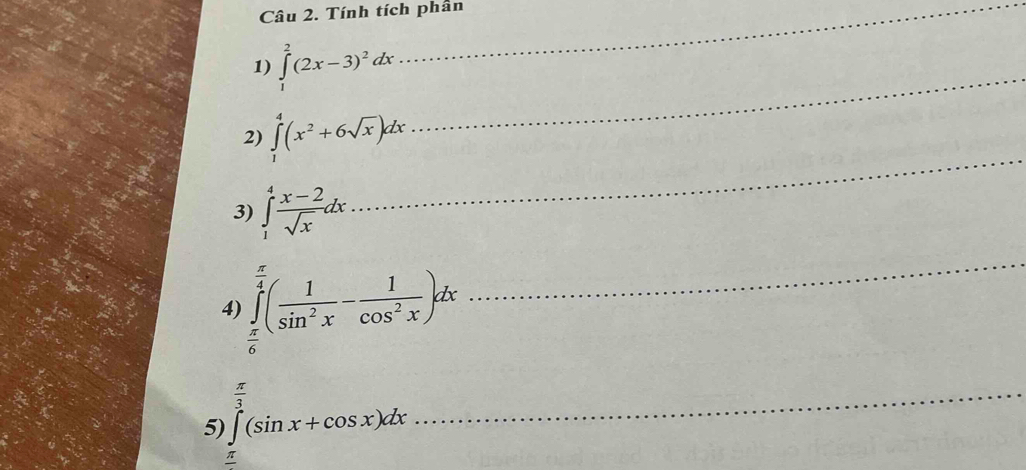 Câu 2. Tính tích phân
1) \int_{1}^{2} (2x-3)^2 dx
2) \int_{1}^{4} (x^2+6\sqrt{x})dx
3) \int_{1}^{4} \frac{x-2}{\sqrt{x}} dx
4) \int_{\frac{\pi}{6}}^{\frac{\pi}{4}} \left(\frac{1}{\sin^2 x}-\frac{1}{\cos^2 x}\right)dx
5) \int_{\frac{\pi}{}}^{\frac{\pi}{3}} (\sin x+\cos x)dx